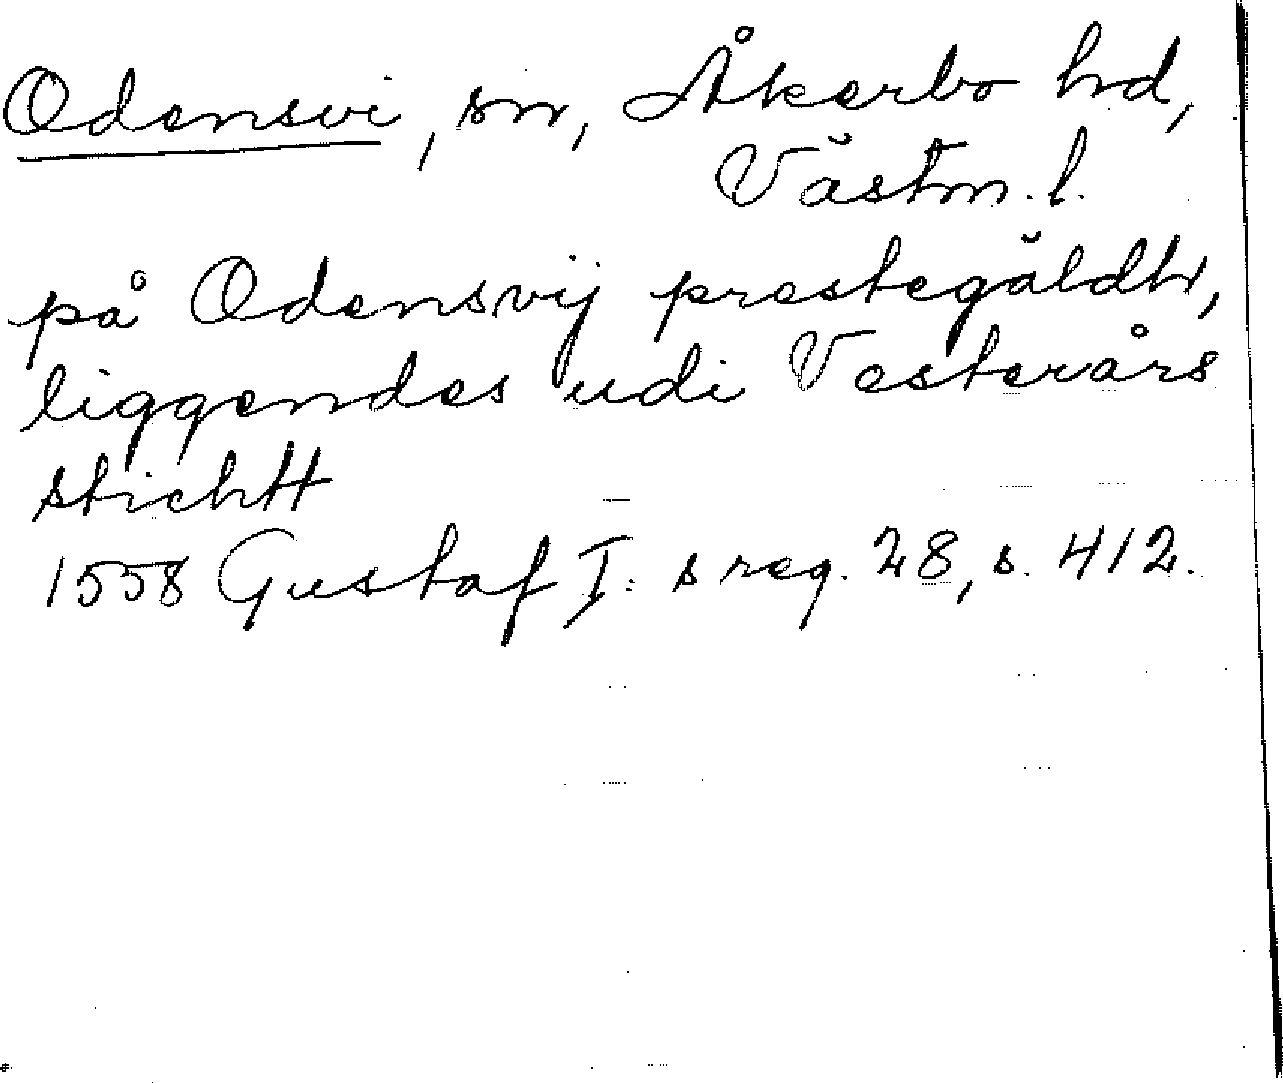 Odensvi, sn, Åkerbo hd,
Västm. l.
på Odensvij prestegäldh,
liggendes udi Vesterårs
stichtt
1558 Gustaf I:s reg. 28, s. 412.